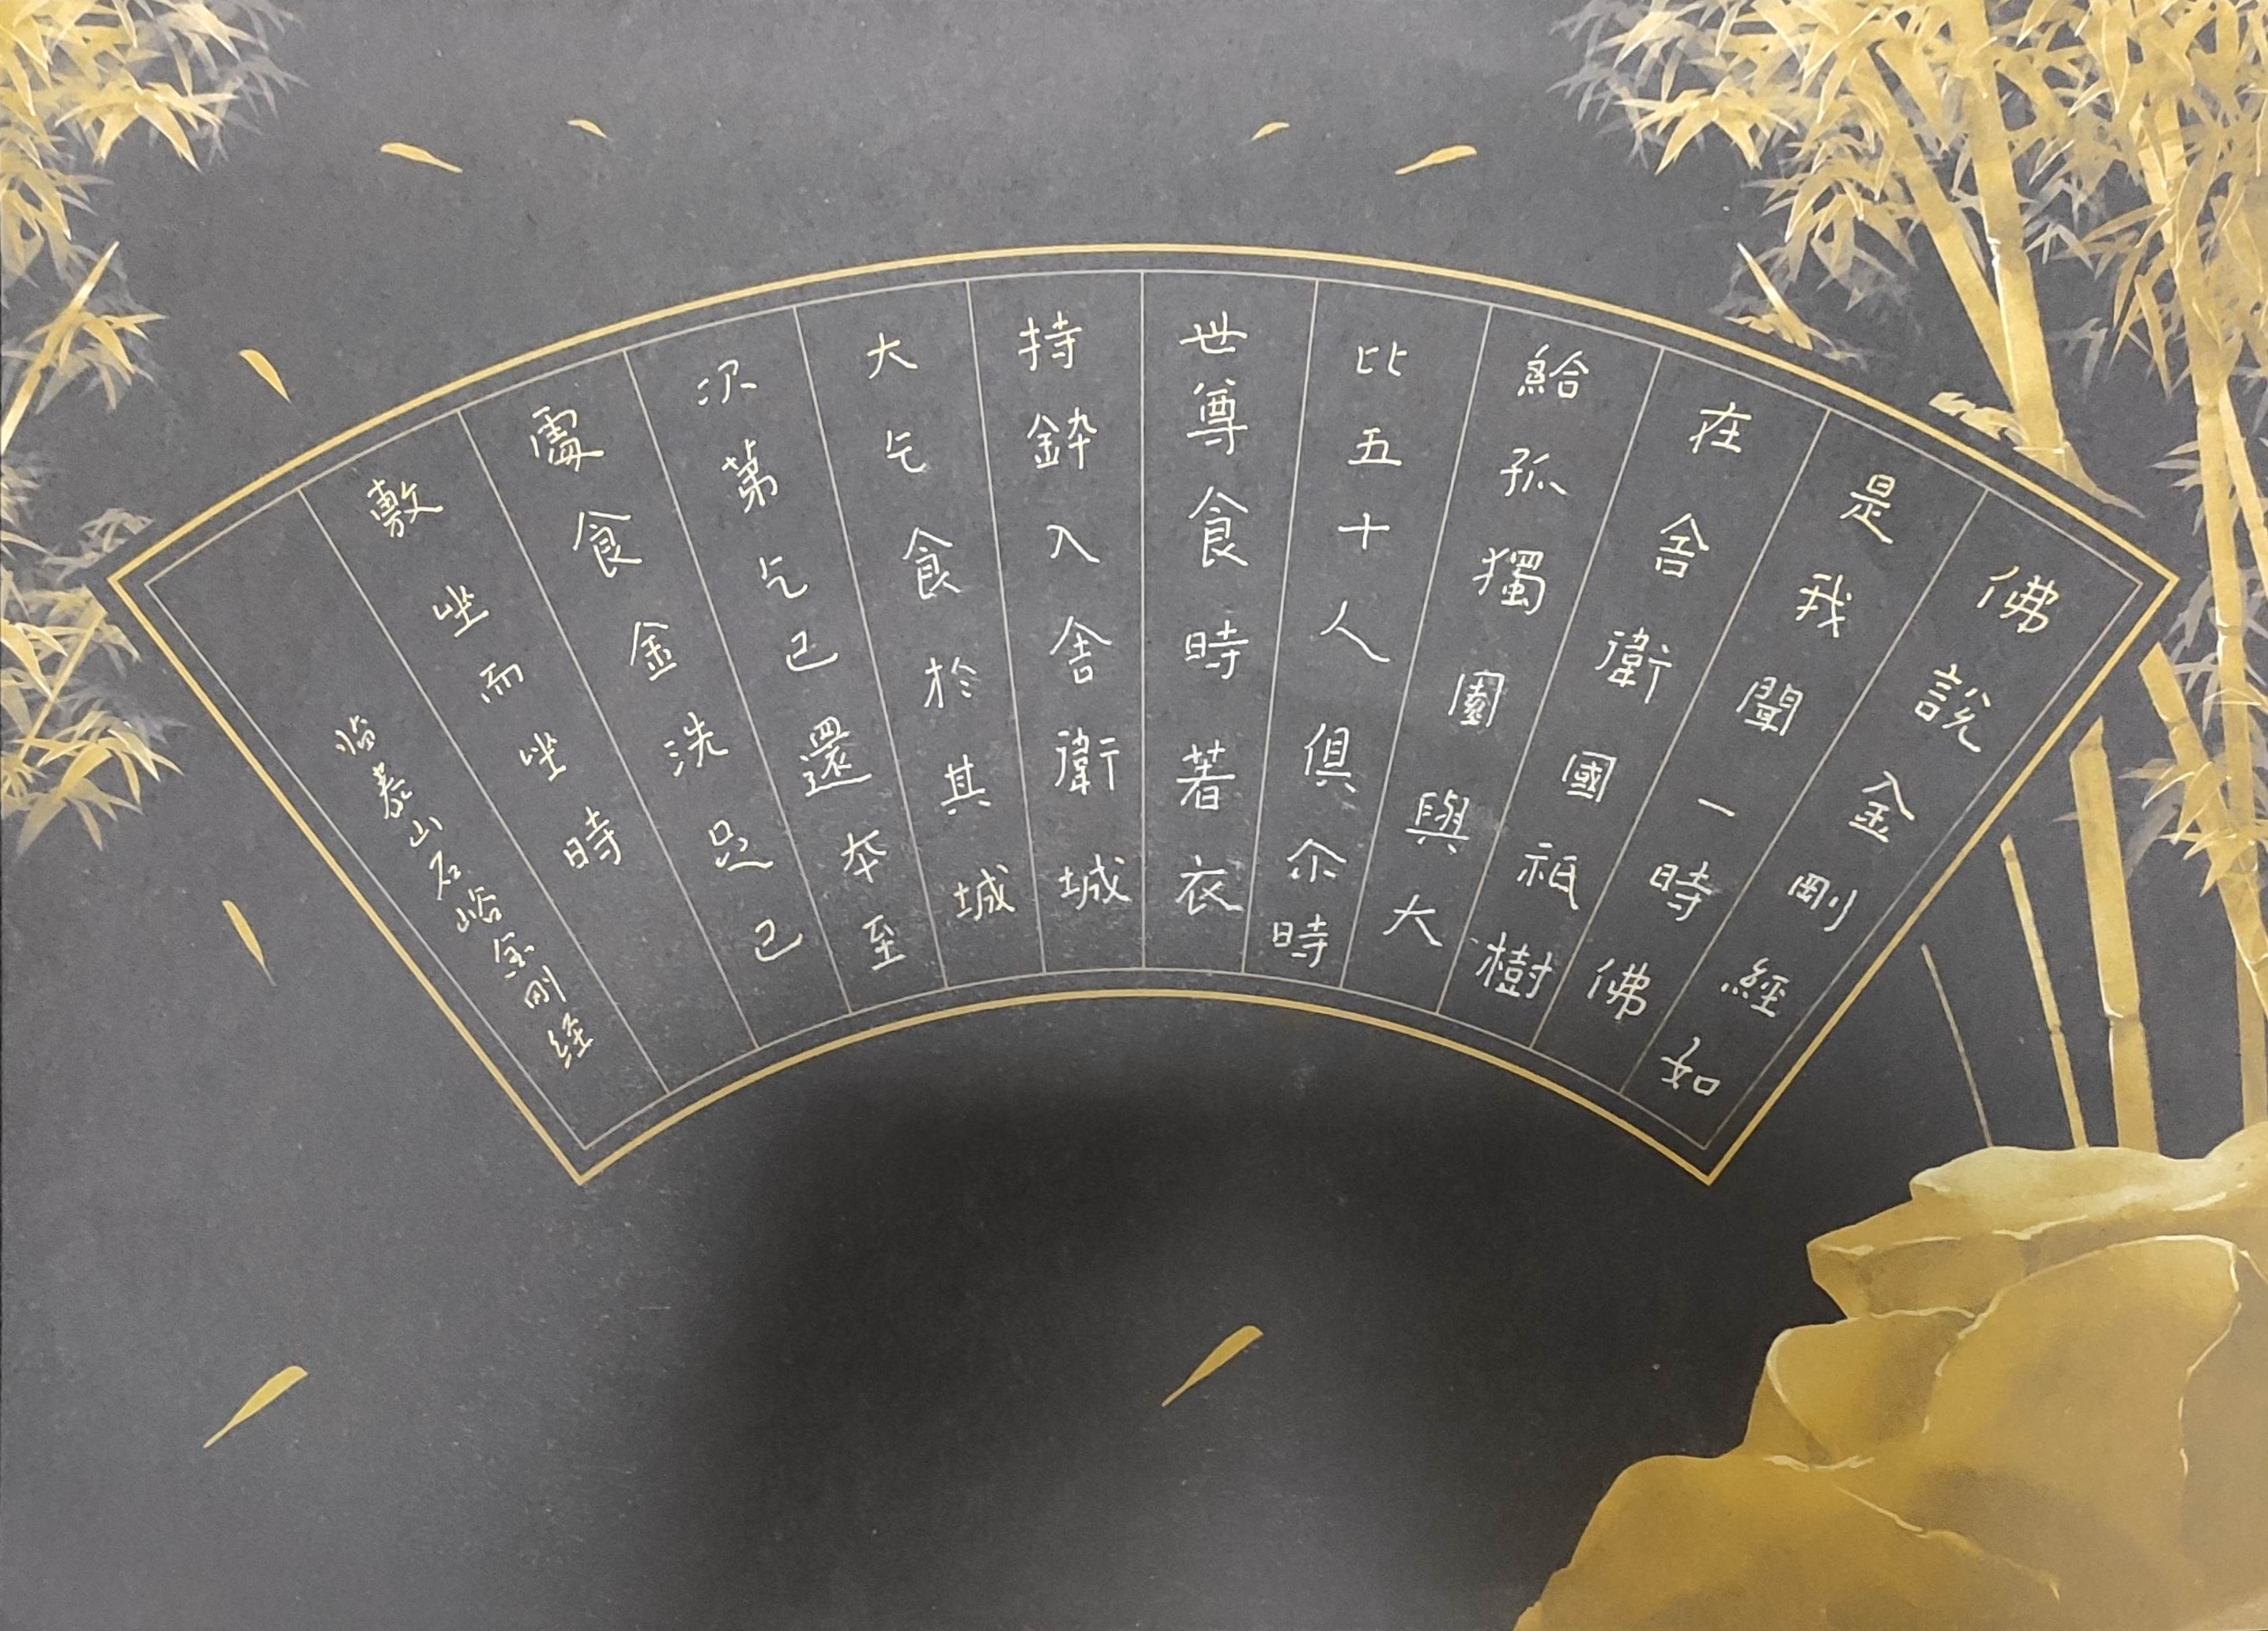 佛說金剛經如
是我聞一時佛
在舍衛國祇樹
給孤獨園與大
比五十人俱尒時
世尊食時著衣
持鉢入舍衛城
大乞食於其城
次第乞已還本至
食金洗足已
敷坐而坐時
临泰山石峪金刚经